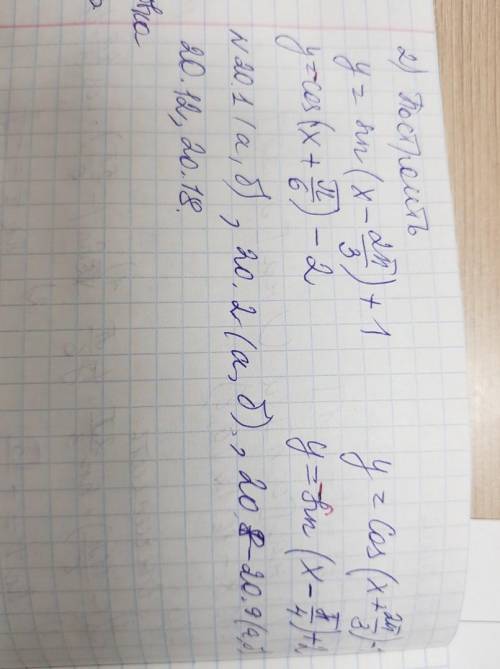 2) Построить
y = sin(x - 2π/3) + 1    y = cos(x + 2π/3)
y = -cos(x + π/6) - 2    y = -sin(x - π/4) +
N 20.1 (а, б), 20.2 (а, б), 20.
20.12, 20.18.